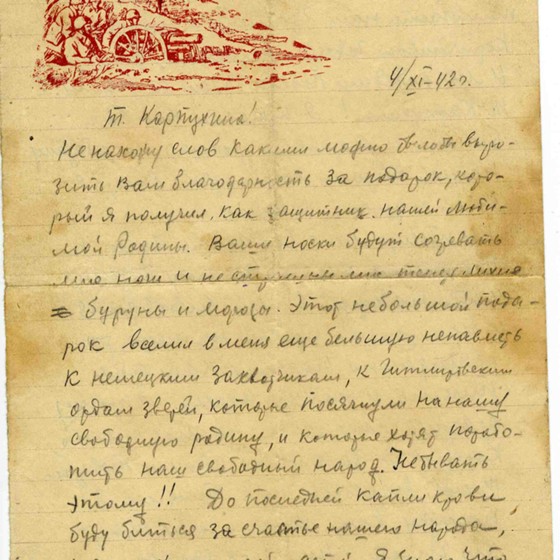 4/XI-42 г.
т. Карпухина!
Не нахожу слов какими можно было бы выра-
зить Вам благодарность за подарок, кото-
рый я получил, как защитник нашей Люби-
мой Родины. Ваши носки будут согревать
мне ноги и не страшны мне теперь
бураны и морозы. Этот небольшой пода-
рок вселил в меня еще большую ненависть
к немецким захватчикам, к Гитлеровским
ордам зверей, которые посягнули на нашу
свободную родину, и которые хотят порабо-
тить наш свободный народ. Не бывать
этому!! До последней капли крови,
буду биться за счастье нашего народа,